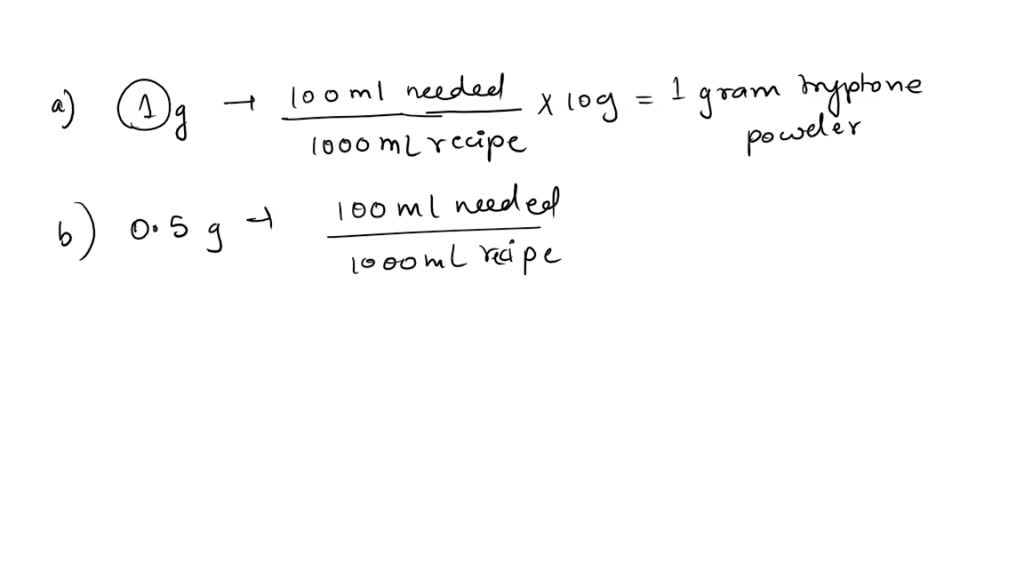 a) 1 g → 100ml needed / 1000 mL recipe × 10g = 1 gram tryptone powder
b) 0.5 g → 100 ml needed / 1000 mL recipe